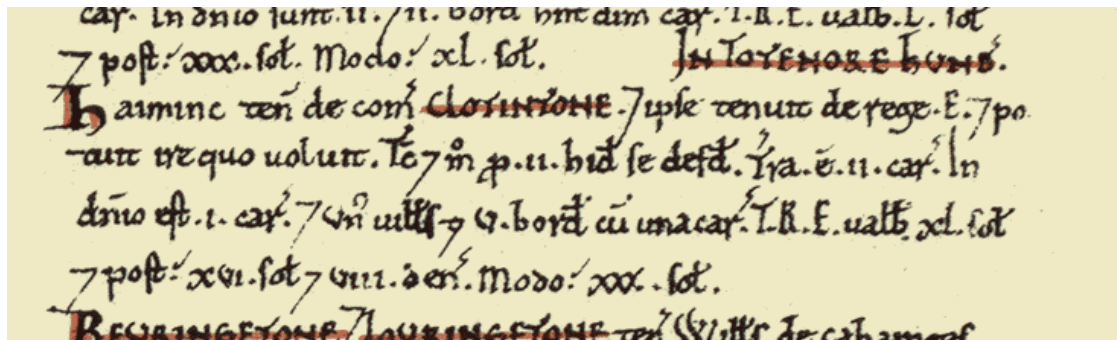 car̃. In dñio sunt .ii. ⁊ .ii. bord hñt dim car̃. T.R.E. ualb̃ .L. sol̃
⁊ post: xxx. sol̃. Modo: xl. sol̃. IN TOTENORE HUND̃.
Haiminc ten̄ de com̃ CLOTINTONE. ⁊ ipse tenuit de rege .E. ⁊ po
tuit ire quo uoluit. Tc̄ ⁊ m̊ p̱ .ii. hid̃ se defd̃. Tr̃a .ē. ii. car̃. In
dñio est .i. car̃. ⁊ un̊ uill̃s ⁊ v. bord̃ cū una car̃. T.R.E. ualb̃. xl. sol̃
⁊ post: xvi. sol̃ ⁊ viii. den̄. Modo: xxx. sol̃.
BEVRINGETONE ⁊ LOVRINGETONE ten̄ Will̃s de cahainges